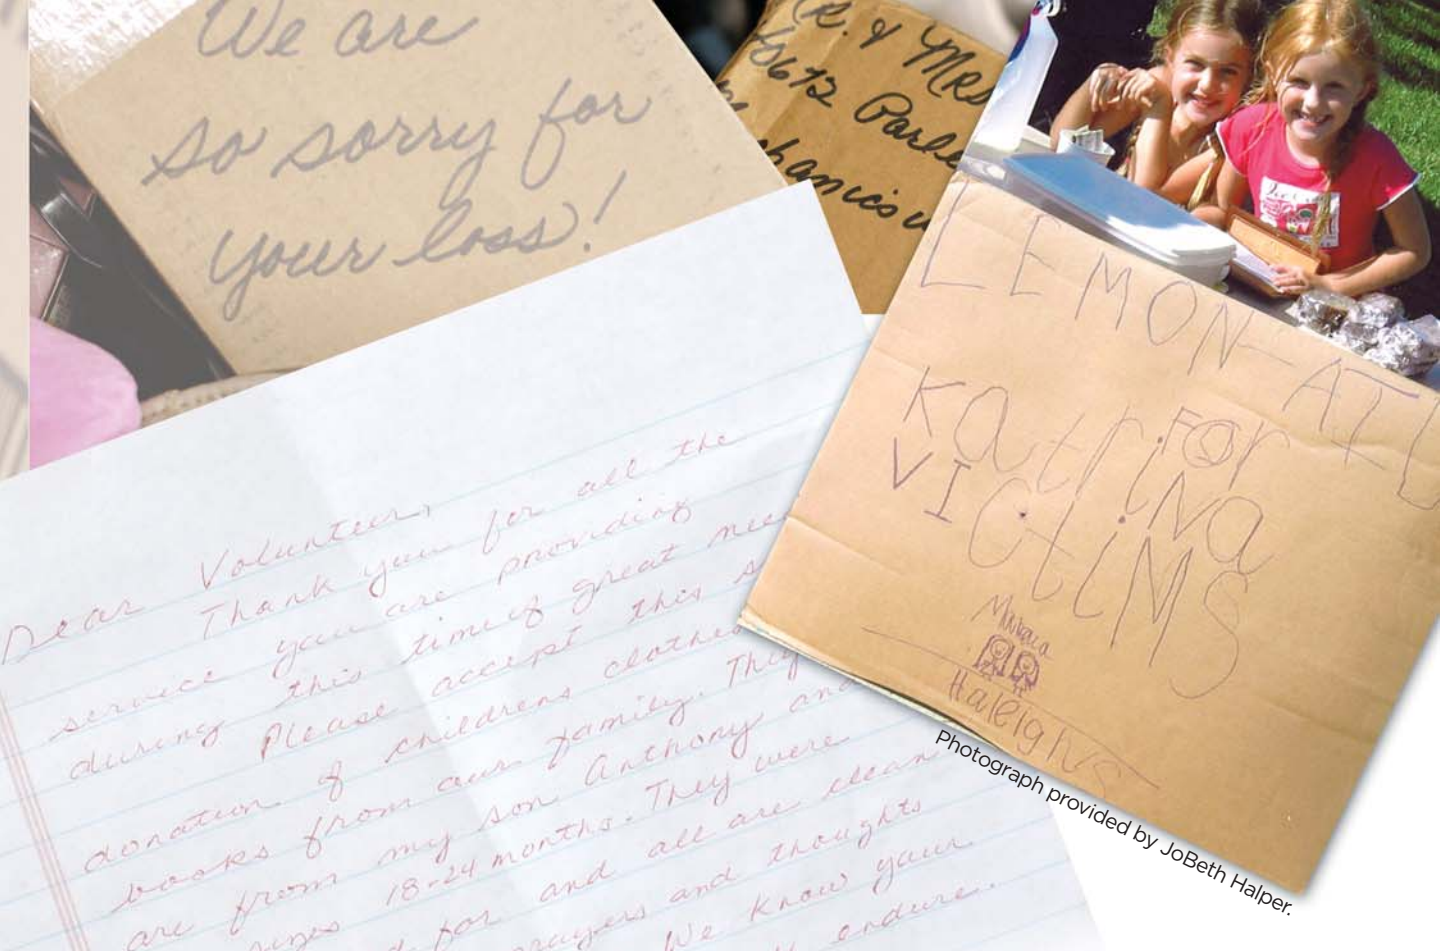 We are
so sorry for
your loss!
& Mrs
672 Parle
LEMON-AID
FOR
Katrina
VICtiMS
Haleigh's
Photograph provided by JoBeth Halper.
Dear Volunteer,
Thank you for all the
service you are providing
during this time of great
Please accept this
donation of childrens clothes
books from our family. They
are from my son Anthony and
18-24 months. They were
for and all are clean
and thoughts
We know your
endure.